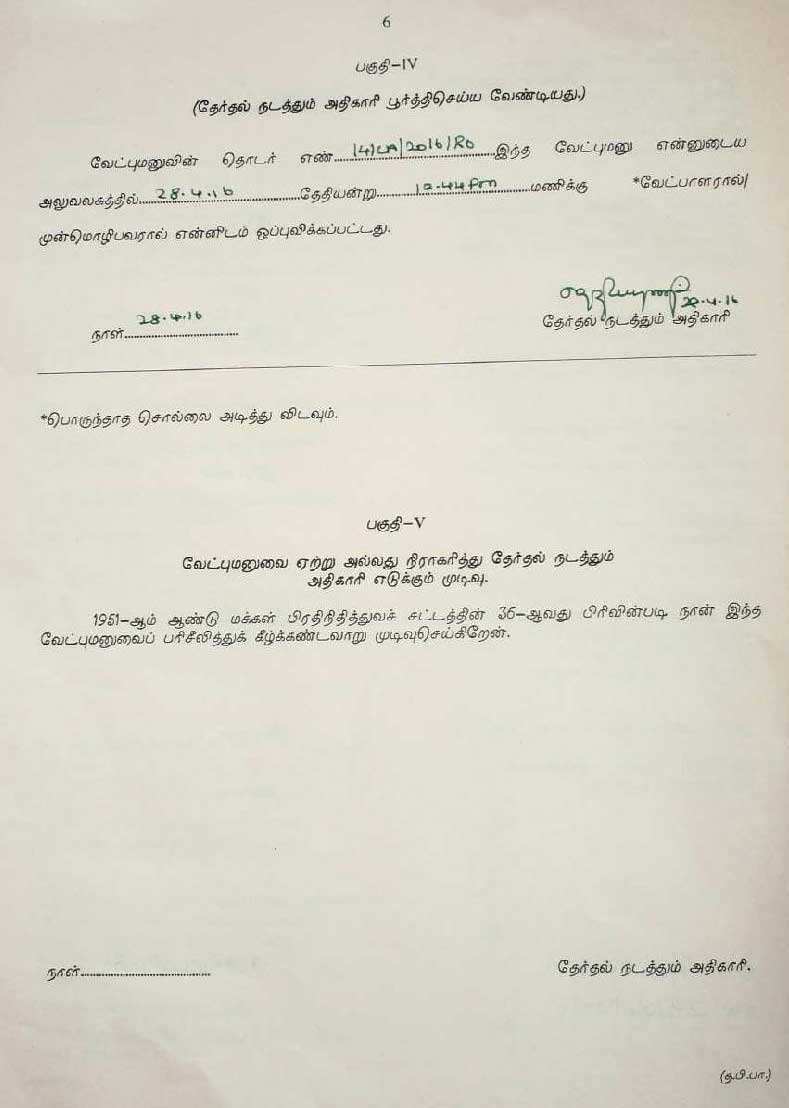 6
பகுதி-IV
(தேர்தல் நடத்தும் அதிகாரி பூர்த்திசெய்ய வேண்டியது.)
வேட்புமனுவின் தொடர் எண் 14/LA/2016/RO இந்த வேட்புமனு என்னுடைய
அலுவலகத்தில் 28.4.16 தேதியன்று 12.44 Pm மணிக்கு *வேட்பாளரால்/
முன்மொழிபவரால் என்னிடம் ஒப்புவிக்கப்பட்டது.
28.4.16
நாள்
28.4.16
தேர்தல் நடத்தும் அதிகாரி
*பொருந்தாத சொல்லை அடித்து விடவும்.
பகுதி-V
வேட்புமனுவை ஏற்று அல்லது நிராகரித்து தேர்தல் நடத்தும்
அதிகாரி எடுக்கும் முடிவு.
1951-ஆம் ஆண்டு மக்கள் பிரதிநிதித்துவச் சட்டத்தின் 36-ஆவது பிரிவின்படி நான் இந்த
வேட்புமனுவைப் பரிசீலித்துக் கீழ்க்கண்டவாறு முடிவுசெய்கிறேன்.
நாள்
தேர்தல் நடத்தும் அதிகாரி.
(த.பி.பா.)